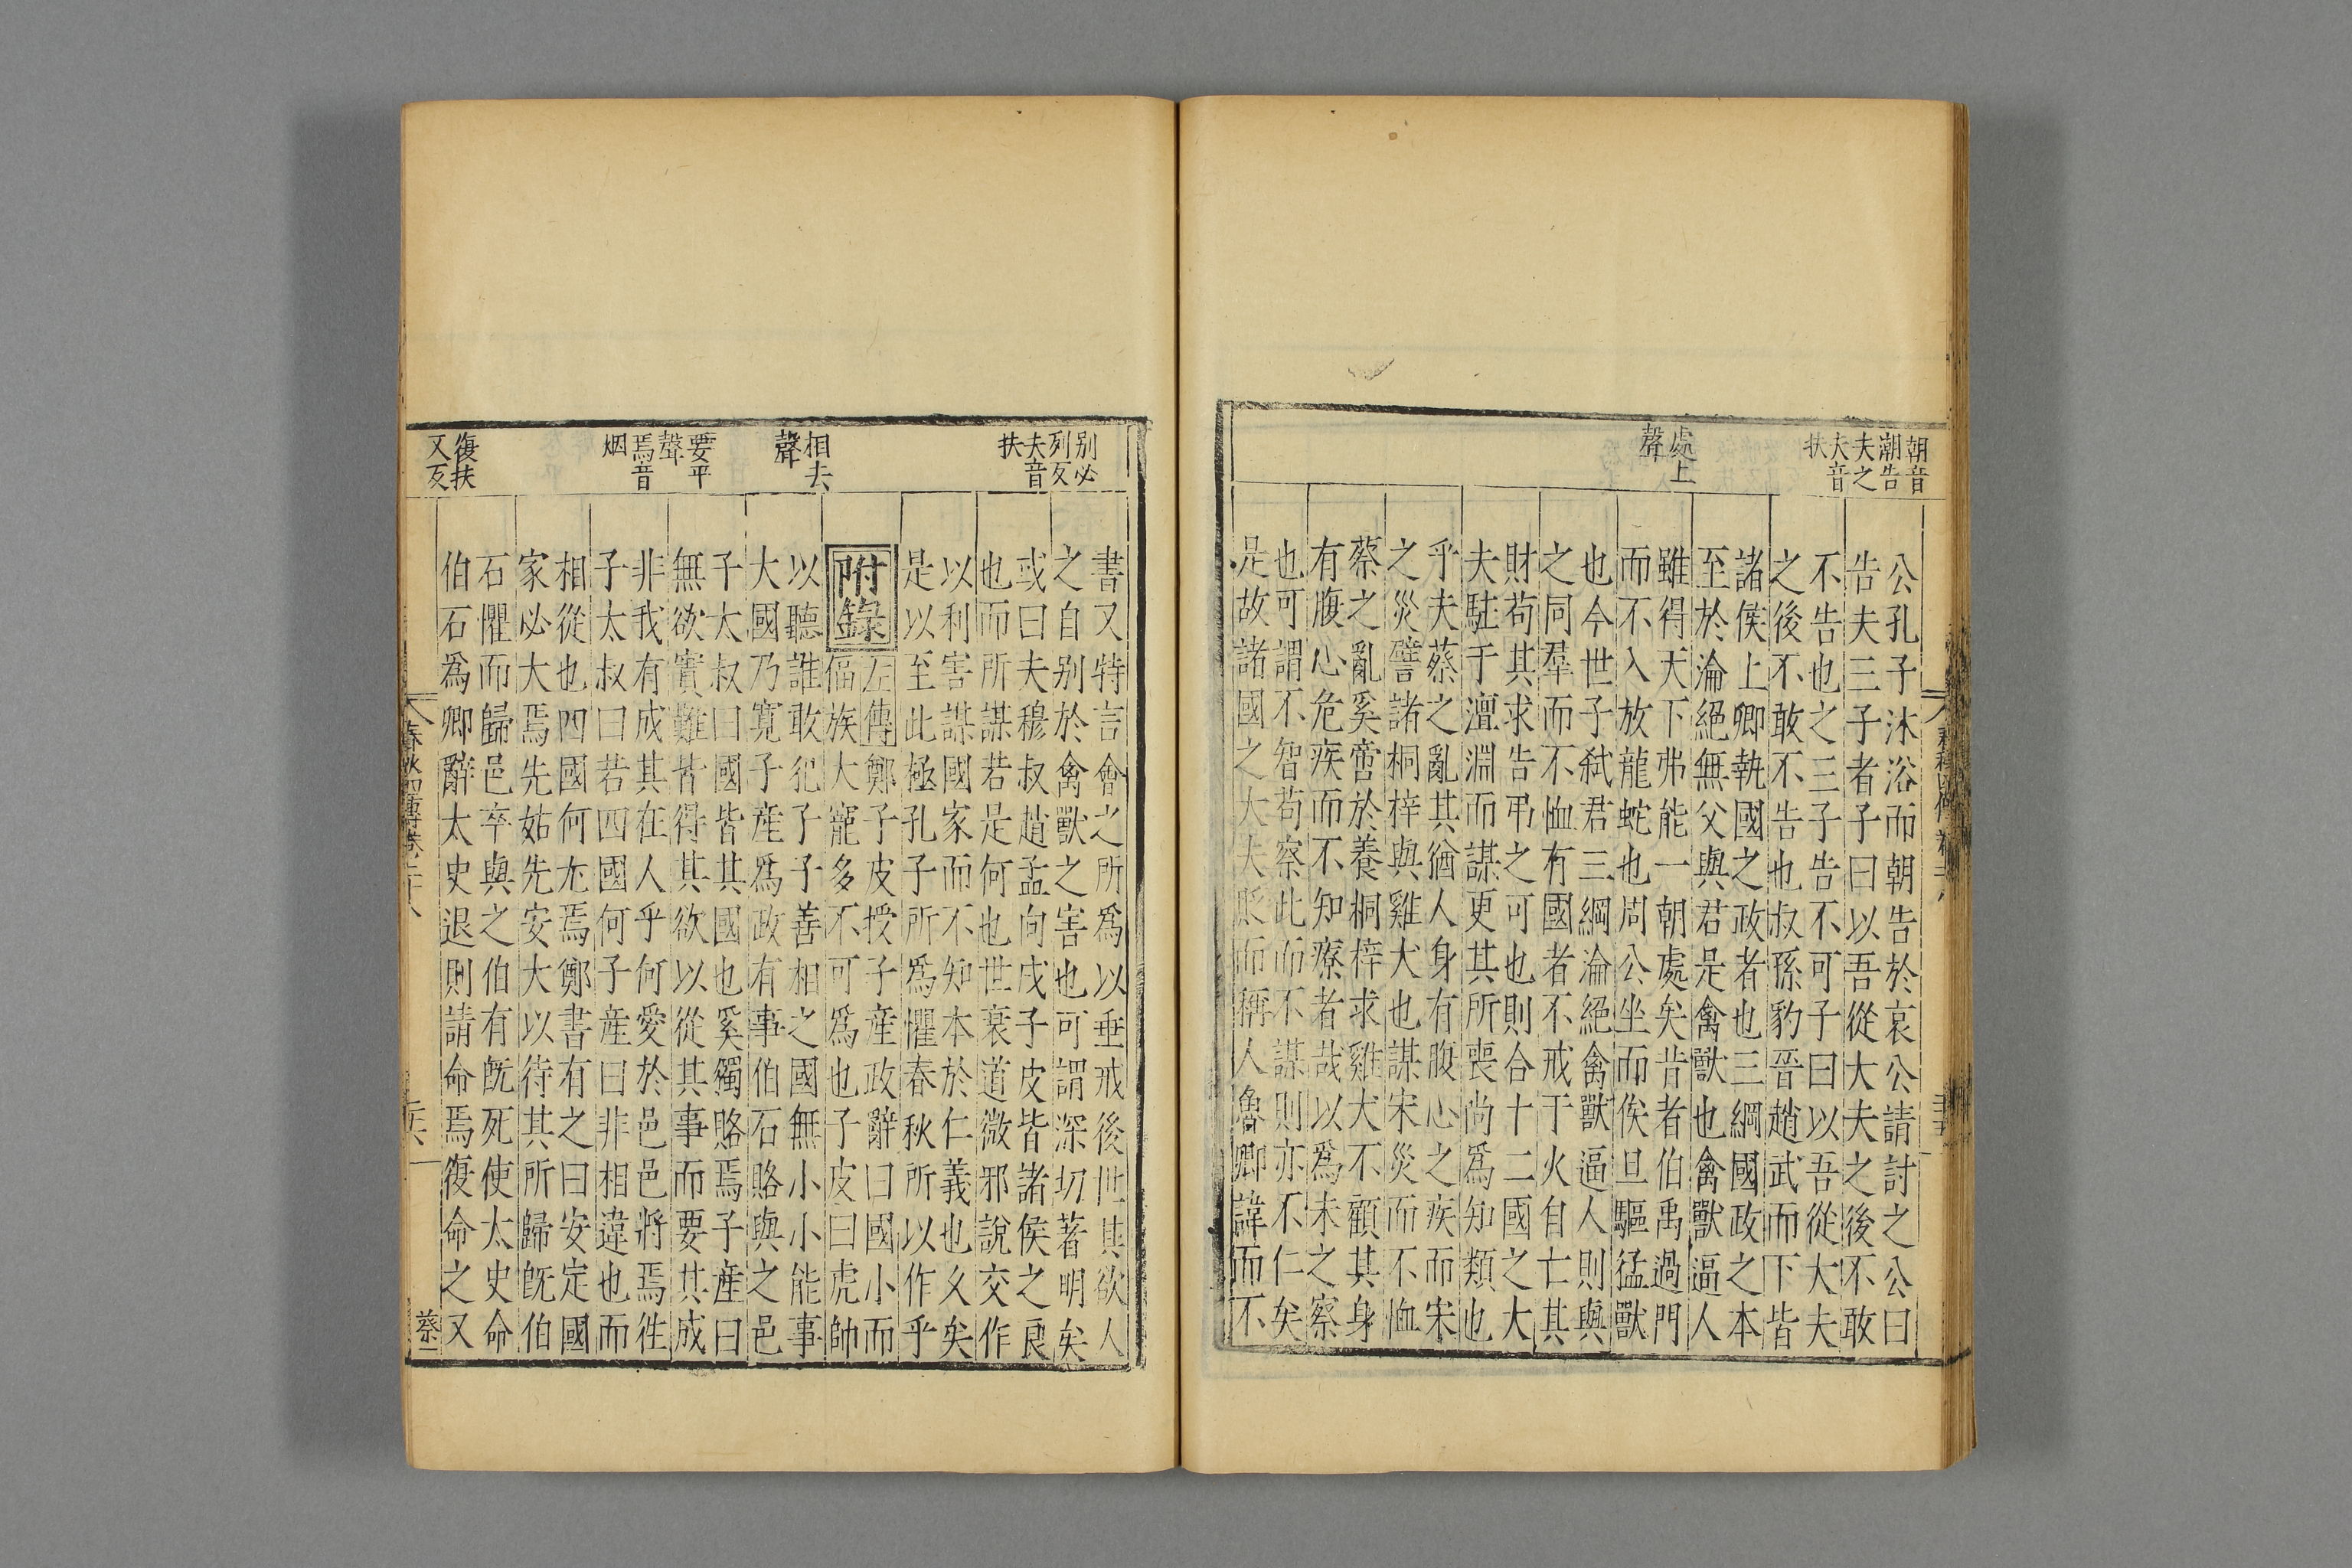 朝音
潮告
夫之
大音
扶
處上
聲
公孔子沐浴而朝告於哀公請討之公曰
告夫三子者子曰以吾從大夫之後不敢
不告也之三子告不可子曰以吾從大夫
之後不敢不告也叔孫豹晉趙武而下皆
諸侯上卿執國之政者也三綱國政之本
至於淪絕無父與君是禽獸也禽獸逼人
雖得天下弗能一朝處矣昔者伯禹過門
而不入放龍蛇也周公坐而俟旦驅猛獸
也今世子弒君三綱淪絕禽獸逼人則與
之同羣而不恤有國者不戒于火自亡其
財苟其求告弔之可也則合十二國之大
夫駐于澶淵而謀更其所喪尚為知類也
乎夫蔡之亂其猶人身有腹心之疾而宋
之災譬諸桐梓與雞犬也謀宋災而不恤
蔡之亂奚啻於養桐梓求雞犬不顧其身
有腹心危疾而不知療者哉以為未之察
也可謂不智苟察此而不謀則亦不仁矣
是故諸國之大夫貶而稱人魯卿諱而不
別必
列反
夫音
扶
相去
聲
要平
聲
焉音
烟
復扶
又反
書又特言會之所爲以垂戒後世其欲人
之自别於禽獸之害也可謂深切著明矣
或曰夫穆叔趙孟向戌子皮皆諸侯之良
也而所謀若是何也世衰道微邪說交作
以利害謀國家而不知本於仁義也久矣
是以至此極孔子所爲懼春秋所以作乎
附錄
左傳鄭子皮授子産政辭曰國小而
偪族大寵多不可爲也子皮曰虎帥
以聽誰敢犯子子善相之國無小小能事
大國乃寬子産爲政有事伯石賂與之邑
子太叔曰國皆其國也奚獨賂焉子産曰
無欲實難皆得其欲以從其事而要其成
非我有成其在人乎何愛於邑邑將焉徃
子太叔曰若四國何子産曰非相違也而
相從也四國何尤焉鄭書有之曰安定國
家必大焉先姑先安大以待其所歸旣伯
石懼而歸邑卒與之伯有旣死使太史命
伯石爲卿辭太史退則請命焉復命之又
春秋四傳卷二十八
蔡二